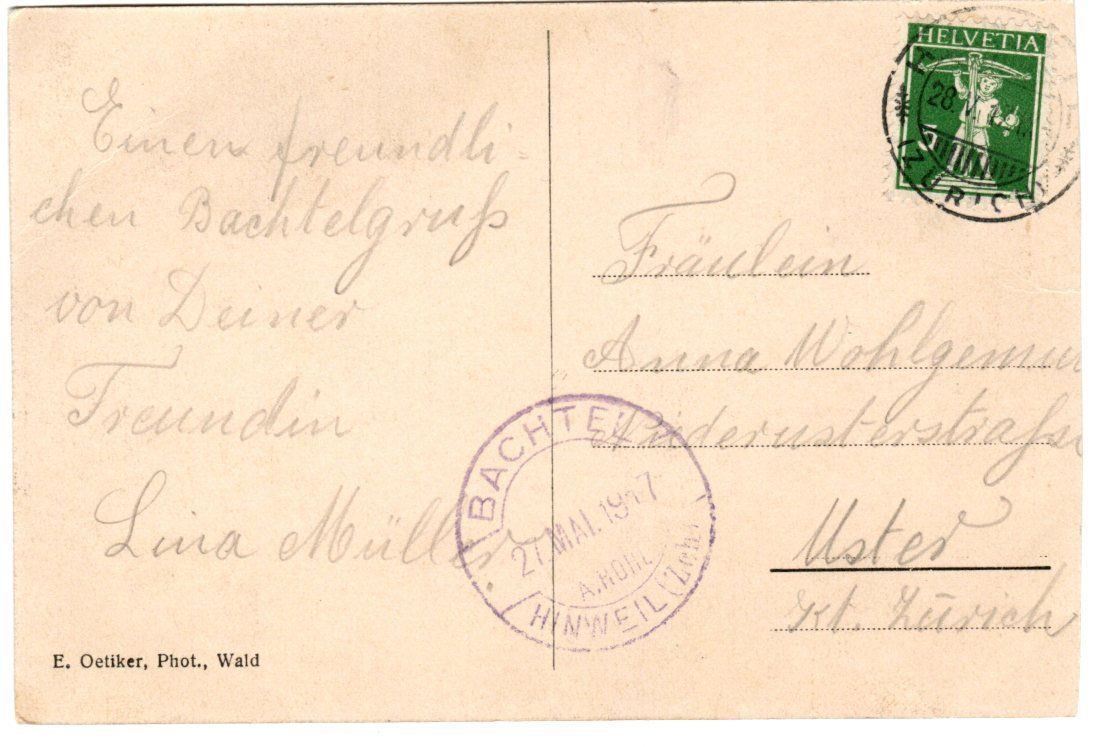 Einen freundli-
chen Bachtelgruß
von Deiner
Freundin
Lina Müller
E. Oetiker, Phot., Wald
HELVETIA
28. V.
ZÜRICH
Fräulein
Anna
Niederusterstraße
Uster
Kt. Zürich
BACHTEL
27 MAI. 1917
HINWEIL (Zch.)